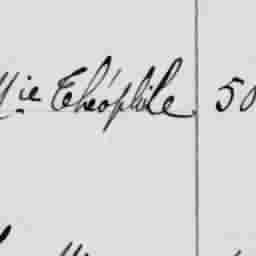 ie Théophile 50